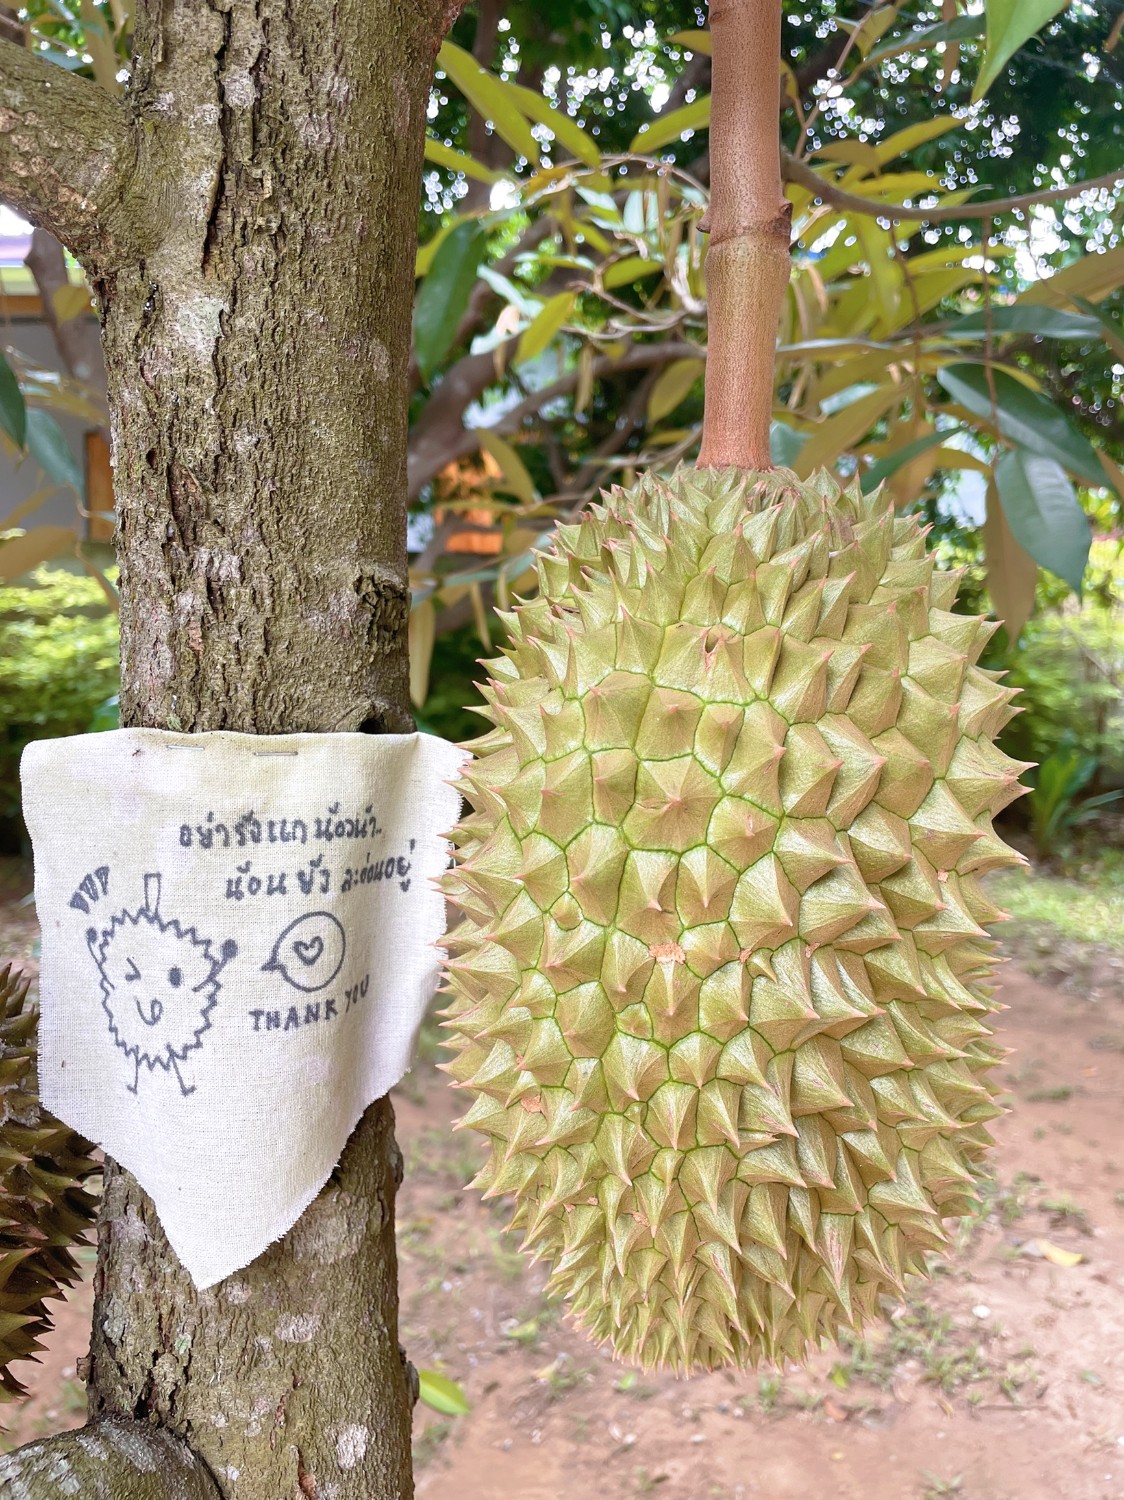 อย่ารังแก น้อวน้า..
น้อน ยัว ละอ่อนอยู่
THANK YOU